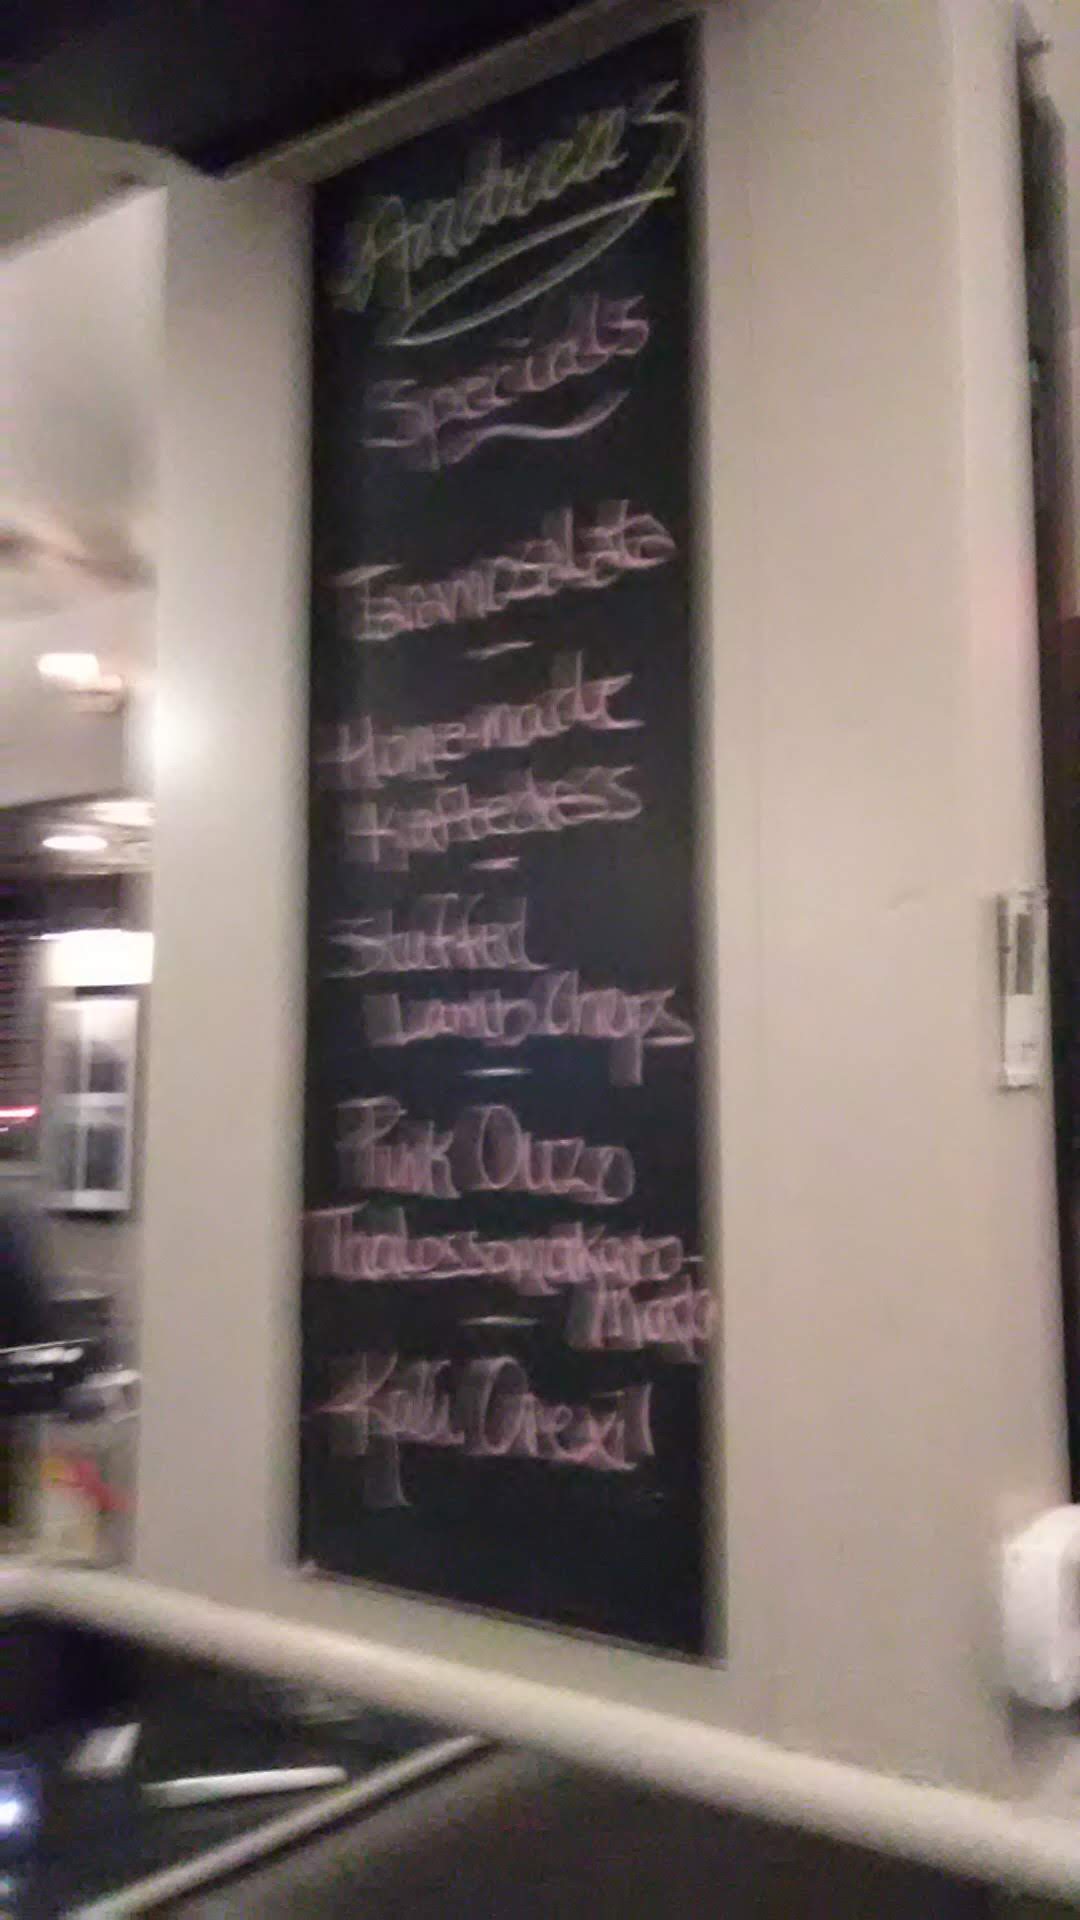 Andreas
Specials
Taramosalata
-
Home-made
Kaftedess
-
Stuffed
Lamb Chops
-
Pink Ouzo
Thalossomakaro-
-
Kali Orexi!